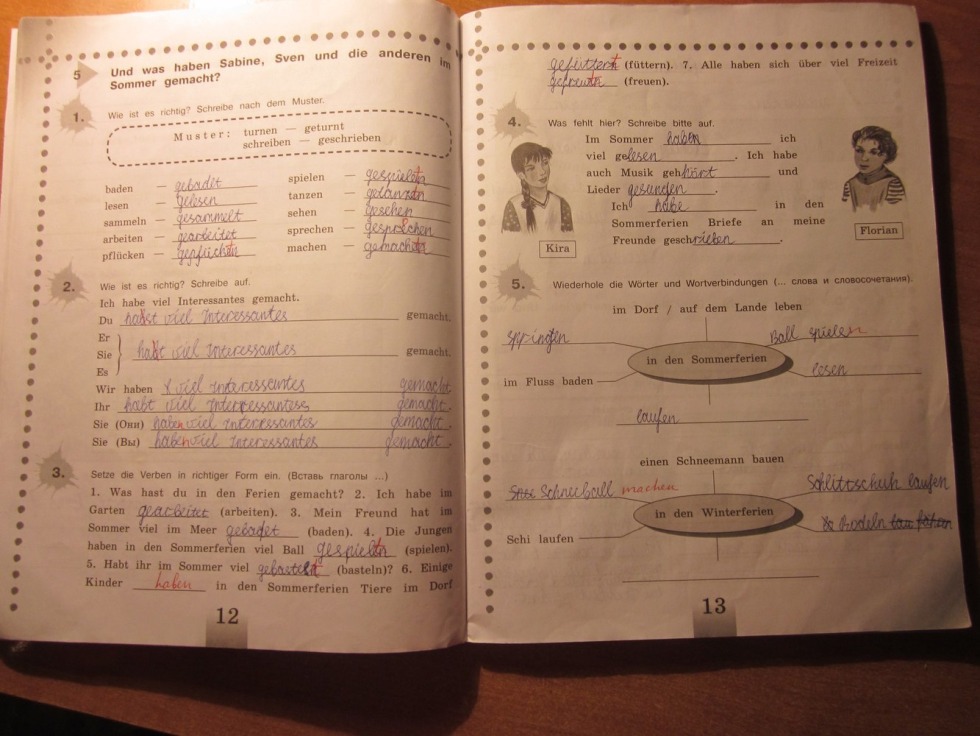 5 Und was haben Sabine, Sven und die anderen im
Sommer gemacht?
1. Wie ist es richtig? Schreibe nach dem Muster.
Muster: turnen — geturnt
schreiben — geschrieben
baden — gebadet
lesen — gelesen
sammeln — gesammelt
arbeiten — gearbeitet
pflücken —
spielen — gespielt
tanzen — getanzt
sehen — gesehen
sprechen — gesprochen
machen — gemacht
2. Wie ist es richtig? Schreibe auf.
Ich habe viel Interessantes gemacht.
Du hast viel Interessantes gemacht.
Er
Sie hat viel Interessantes gemacht.
Es
Wir haben viel Interessantes gemacht
Ihr habt viel Interessantes gemacht.
Sie (Они) haben viel Interessantes gemacht.
Sie (Вы) haben viel Interessantes gemacht.
3. Setze die Verben in richtiger Form ein. (Вставь глаголы ...)
1. Was hast du in den Ferien gemacht? 2. Ich habe im
Garten gearbeitet (arbeiten). 3. Mein Freund hat im
Sommer viel im Meer gebadet (baden). 4. Die Jungen
haben in den Sommerferien viel Ball gespielt (spielen).
5. Habt ihr im Sommer viel gebastelt (basteln)? 6. Einige
Kinder haben in den Sommerferien Tiere im Dorf
12
gefüttert (füttern). 7. Alle haben sich über viel Freizeit
gefreut (freuen).
4. Was fehlt hier? Schreibe bitte auf.
Im Sommer haben ich
viel gelesen. Ich habe
auch Musik gehört und
Lieder gesunden.
Ich habe in den
Sommerferien Briefe an meine
Freunde geschrieben.
Kira
Florian
5. Wiederhole die Wörter und Wortverbindungen (... слова и словосочетания).
im Dorf / auf dem Lande leben
springen
Ball spielen
in den Sommerferien
lesen
im Fluss baden
laufen
einen Schneemann bauen
Schneeball machen
Schlittschuh laufen
in den Winterferien
Rodeln
Schi laufen
13